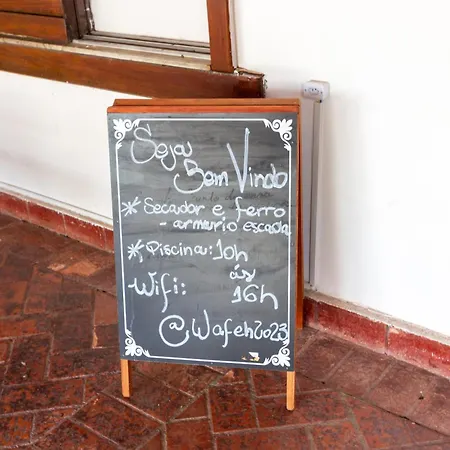 Seja
Bem Vindo
* Secador e ferro
- armario escada
* Piscina: 10h
ás
Wifi: 16h
@Wafeh2023